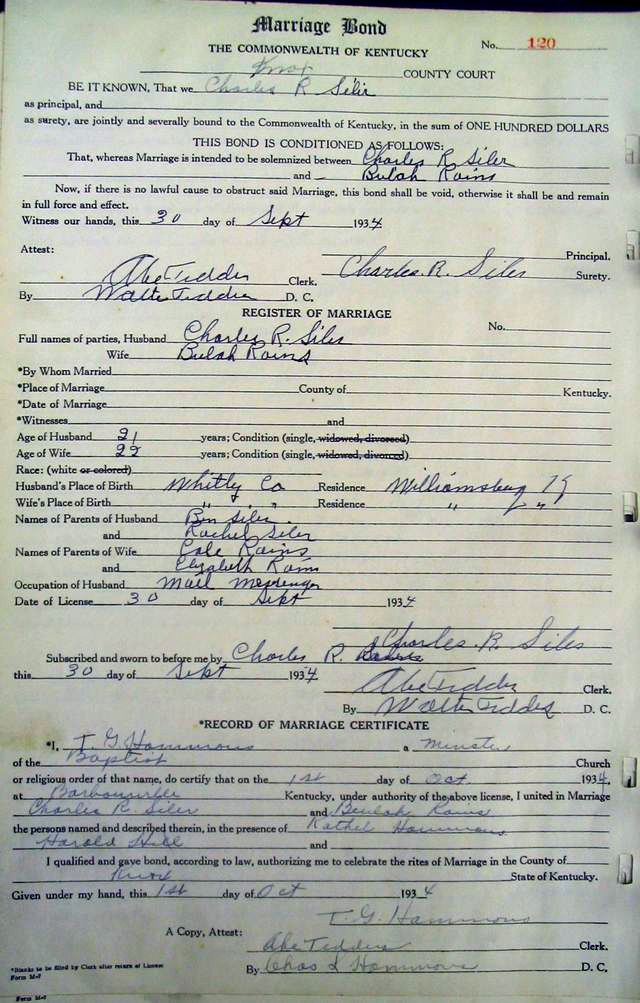 Marriage Bond
THE COMMONWEALTH OF KENTUCKY No. 120
Knox COUNTY COURT
BE IT KNOWN, That we Charles R Siler
as principal, and
as surety, are jointly and severally bound to the Commonwealth of Kentucky, in the sum of ONE HUNDRED DOLLARS
THIS BOND IS CONDITIONED AS FOLLOWS:
That, whereas Marriage is intended to be solemnized between Charles R. Siler
and Bulah Rains
Now, if there is no lawful cause to obstruct said Marriage, this bond shall be void, otherwise it shall be and remain
in full force and effect.
Witness our hands, this 30 day of Sept 1934
Attest: Principal.
Abe Tedders Clerk. Charles. R. Siler Surety.
By Walter Tedders D. C.
REGISTER OF MARRIAGE
No.
Full names of parties, Husband Charles R. Siler
Wife Bulah Rains
*By Whom Married
*Place of Marriage County of Kentucky.
*Date of Marriage
*Witnesses and
Age of Husband 21 years; Condition (single, widowed, divorced)
Age of Wife 22 years; Condition (single, widowed, divorced)
Race: (white or colored)
Husband's Place of Birth Whitly Co Residence Williamsburg Ky
Wife's Place of Birth " " Residence " "
Names of Parents of Husband Ben Siler
and Rachel Siler
Names of Parents of Wife Cole Rains
and Elizabeth Rains
Occupation of Husband Mail Messenger
Date of License 30 day of Sept 1934
Charles. R. Siler
Subscribed and sworn to before me by Charles R.
this 30 day of Sept 1934
Abe Tedders Clerk.
By Walter Tedders D. C.
*RECORD OF MARRIAGE CERTIFICATE
*I, T. G. Hammons a Minster
of the Baptist Church
or religious order of that name, do certify that on the 1st day of Oct. 1934
at Barbourville Kentucky, under authority of the above license, I united in Marriage
Charles R. Siler and Beulah Rains
the persons named and described therein, in the presence of Rathel Hammons
Harold Hill and
I qualified and gave bond, according to law, authorizing me to celebrate the rites of Marriage in the County of
Knox State of Kentucky.
Given under my hand, this 1st day of Oct 1934
T. G. Hammons
A Copy, Attest: Abe Tedders Clerk.
By Chas L Hammons D. C.
*Blanks to be filled by Clerk after return of License
Form M-7
Form M-7